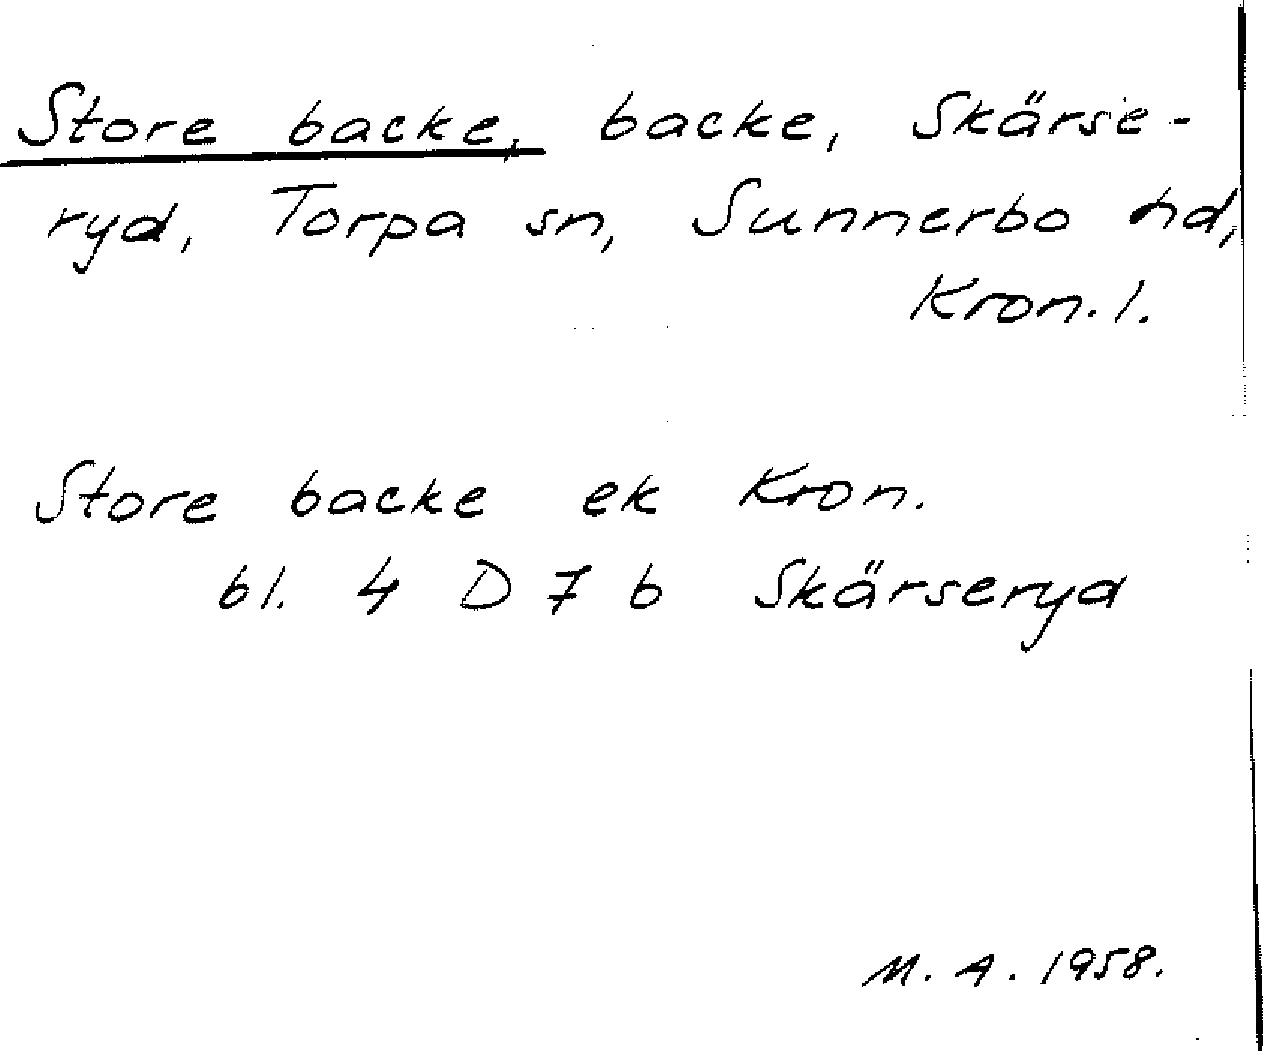 Store backe, backe, Skärse-
ryd, Torpa sn, Sunnerbo hd,
Kron. l.
Store backe ek Kron.
bl. 4 D 7 b Skärseryd
M. A. 1958.